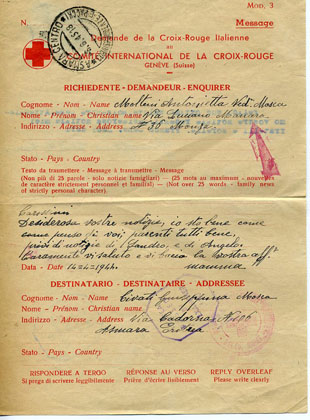 MOD. 3
N.
Message
Demande de la Croix-Rouge Italienne
au
COMITÉ INTERNATIONAL DE LA CROIX-ROUGE
GENÈVE (Suisse)
RICHIEDENTE - DEMANDEUR - ENQUIRER
Cognome - Nom - Name Molteni Antonietta Ved. Mosca
Nome - Prénom - Christian name Via Luciano Manara
Indirizzo - Adresse - Address N° 30 Monza
Stato - Pays - Country
Testo da trasmettere - Message à transmettre - Message
(Non più di 25 parole - solo notizie famigliari) - (25 mots au maximum - nouvelles
de caractère strictement personnel et familial) - (Not over 25 words - family news
of strictly personal character).
Carissimi
Desiderosa vostre notizie, io sto bene come
come penso di voi, parenti tutti bene,
privi di notizie di Sandro, e di Angelo.
Caramente vi saluto e vi bacio la vostra aff.
Data - Date 14-2-1944. mamma
DESTINATARIO - DESTINATAIRE - ADDRESSEE
Cognome - Nom - Name Civati Giuseppina Mosca
Nome - Prénom - Christian name
Indirizzo - Adresse - Address Via Cadorna N° 106
Asmara Eritrea
Stato - Pays - Country
RISPONDERE A TERGO RÉPONSE AU VERSO REPLY OVERLEAF
Si prega di scrivere leggibilmente Prière d'écrire lisiblement Please write clearly